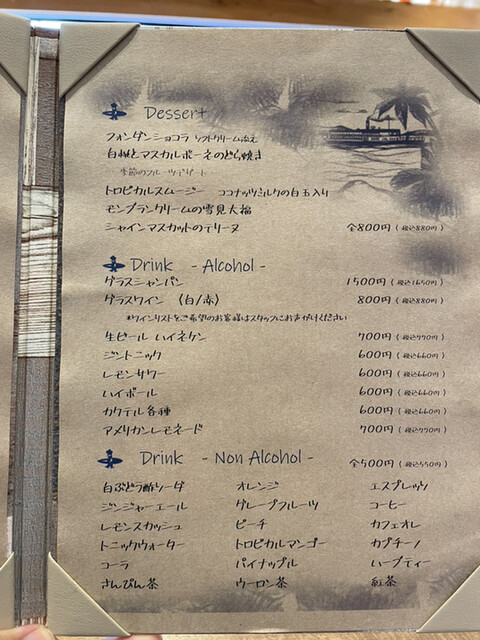 Dessert
フォンダンショコラ ソフトクリーム添え
白桃とマスカルポーネのどら焼き
季節のフルーツデザート
トロピカルスムージー ココナッツミルクの白玉入り
モンブランクリームの雪見大福
シャインマスカットのテリーヌ 全800円 (税込880円)
Drink - Alcohol -
グラスシャンパン 1500円 (税込1650円)
グラスワイン (白/赤) 800円 (税込880円)
*ワインリストをご希望のお客様はスタッフにお声がけください
生ビール ハイネケン 700円 (税込770円)
ジントニック 600円 (税込660円)
レモンサワー 600円 (税込660円)
ハイボール 600円 (税込660円)
カクテル各種 600円 (税込660円)
アメリカンレモネード 700円 (税込770円)
Drink - Non Alcohol - 全500円 (税込550円)
白ぶどう酢ソーダ オレンジ エスプレッソ
ジンジャーエール グレープフルーツ コーヒー
レモンスカッシュ ピーチ カフェオレ
トニックウォーター トロピカルマンゴー カプチーノ
コーラ パイナップル ハーブティー
さんぴん茶 ウーロン茶 紅茶